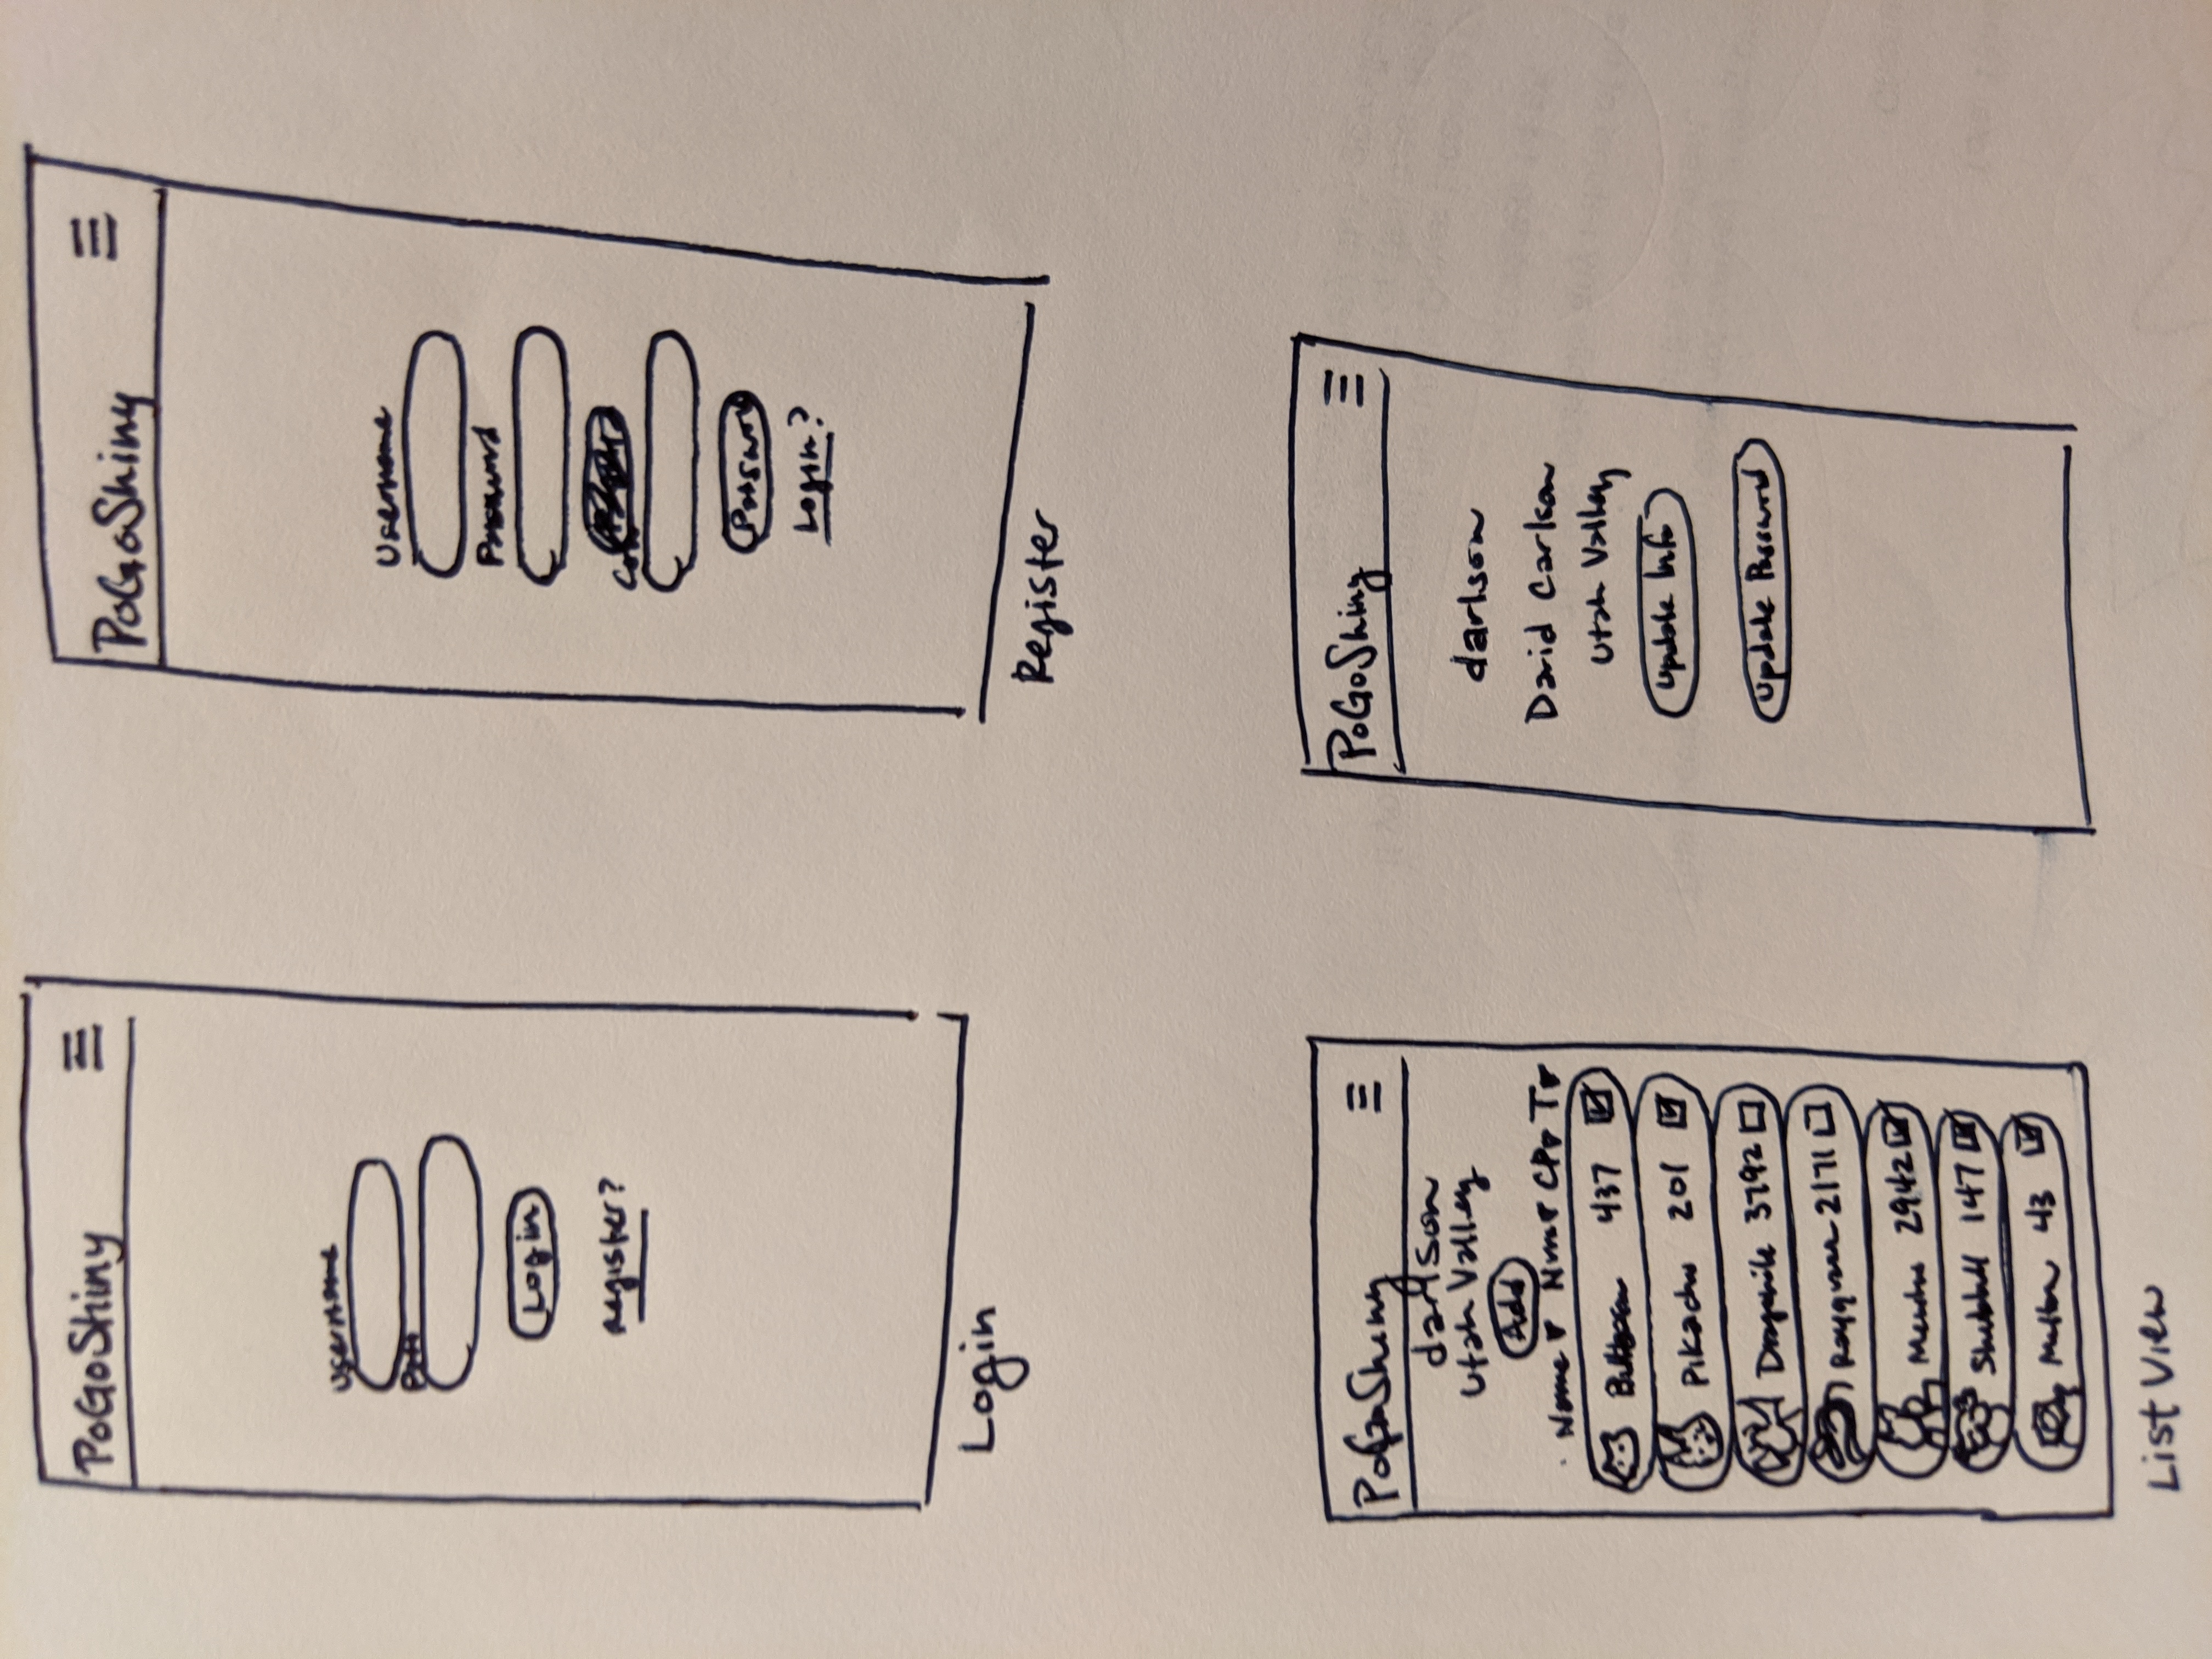 PoGoShiny
Username
Login
Register?
Login
PoGoShiny
Username
Password
Password
Login?
Register
PoGoShiny
darlson
Utah Valley
Add
Name ▼ Num ▼ CP ▼ T ▼
437
Pikachu 201
Dragonite 3792
Rayquaza 2171
Mewtwo 2942
Shubbull 147
Meltan 43
List View
PoGoShiny
darlson
David Carlson
Utah Valley
Update Info
Update Password